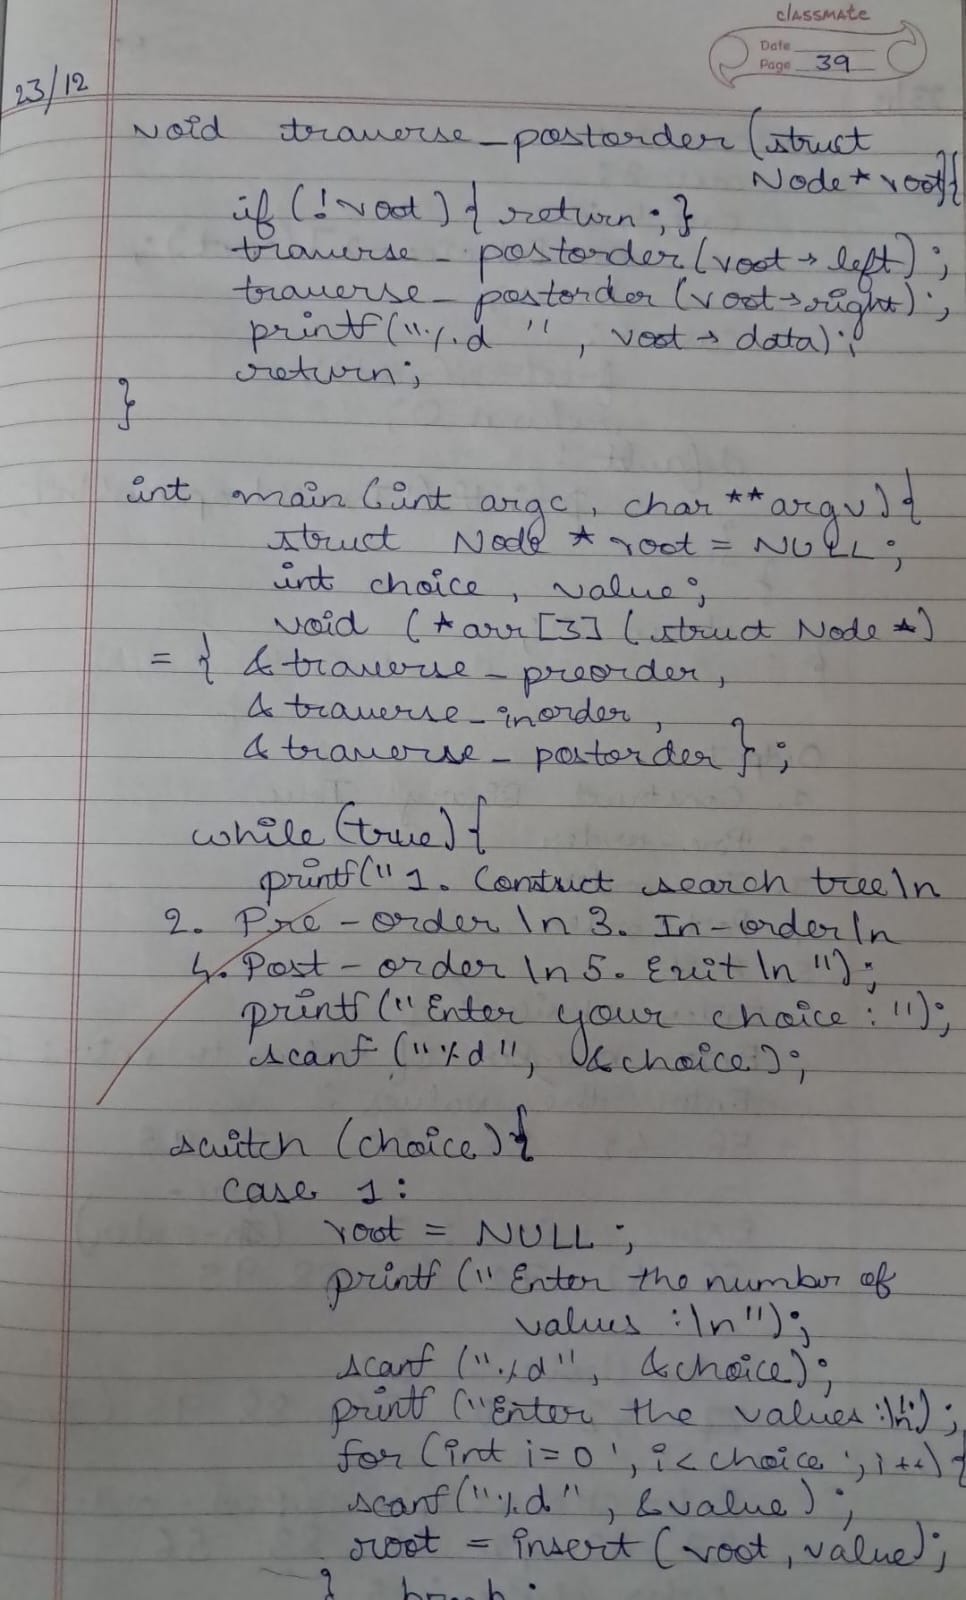 classmate
Date
Page 39
23/12
void traverse_postorder (struct
Node* root){
if (!root) { return ; }
traverse_postorder (root → left) ;
traverse_postorder (root → right) ;
printf("%d ", root → data) ;
return ;
}
int main (int argc, char **argv) {
struct Node * root = NULL ;
int choice , value ;
void (*arr [3] (struct Node *)
= { & traverse_preorder ,
& traverse_inorder ,
& traverse_postorder } ;
while (true) {
printf(" 1. Construct search tree \n
2. Pre-order \n 3. In-order \n
4. Post-order \n 5. Exit \n ") ;
printf (" Enter your choice : ") ;
scanf ("%d", &choice) ;
switch (choice) {
case 1 :
root = NULL ;
printf (" Enter the number of
values :\n") ;
scanf ("%d", &choice) ;
printf ("Enter the values :\n") ;
for (int i=0 ; i<choice ; i++) {
scanf("%d" , &value) ;
root = insert (root, value) ;
} break ;